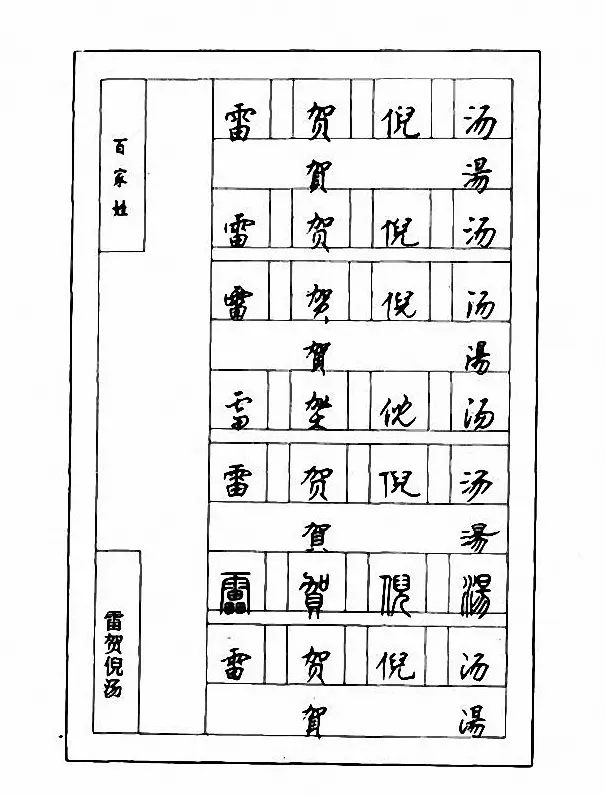 百家姓
雷贺倪汤
雷 贺 倪 汤
賀 湯
雷 贺 倪 汤
雷 贺 倪 汤
賀 湯
雷 贺 倪 汤
雷 贺 倪 汤
賀 湯
雷 賀 倪 湯
雷 贺 倪 汤
賀 湯